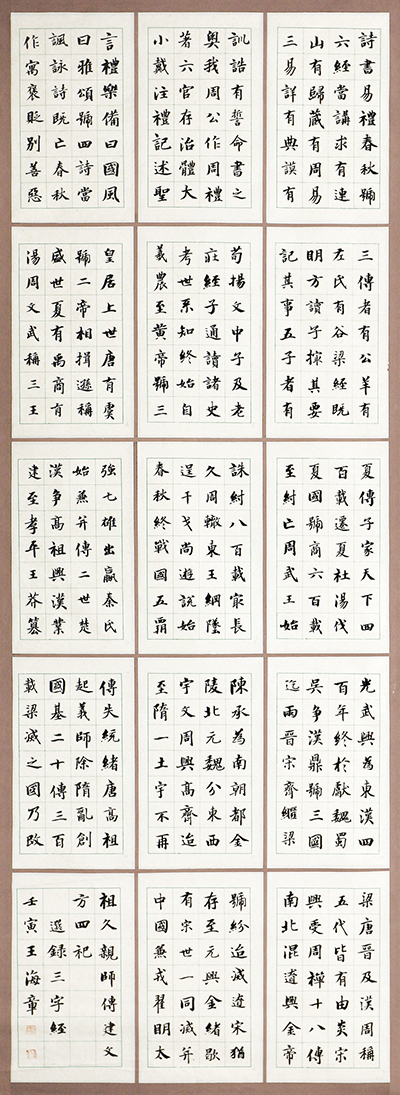 詩書易禮春秋號
六經當講求有連
山有歸藏有周易
三易詳有典謨有
訓誥有誓命書之
奧我周公作周禮
著六官存治體大
小戴注禮記述聖
言禮樂備曰國風
曰雅頌號四詩當
諷詠詩既亡春秋
作寓褒貶別善惡
三傳者有公羊有
左氏有谷梁經既
明方讀子撮其要
記其事五子者有
荀揚文中子及老
莊經子通讀諸史
考世系知終始自
羲農至黃帝號三
皇居上世唐有虞
號二帝相揖遜稱
盛世夏有禹商有
湯周文武稱三王
夏傳子家天下四
百載遷夏社湯伐
夏國號商六百載
至紂亡周武王始
誅紂八百載最長
久周轍東王綱墜
逞干戈尚遊說始
春秋終戰國五霸
強七雄出嬴秦氏
始兼并傳二世楚
漢爭高祖興漢業
建至孝平王莽篡
光武興為東漢四
百年終於獻魏蜀
吳爭漢鼎號三國
迄兩晉宋齊繼梁
陳承為南朝都金
陵北元魏分東西
宇文周興高齊迨
至隋一土宇不再
傳失統緒唐高祖
起義師除隋亂創
國基二十傳三百
載梁滅之國乃改
梁唐晉及漢周稱
五代皆有由炎宋
興受周禪十八傳
南北混遼興金帝
號紛迨滅遼宋猶
存至元興金緒歇
有宋世一同滅并
中國兼戎翟明太
祖久親師傳建文
方四祀
選錄三字經
壬寅王海章